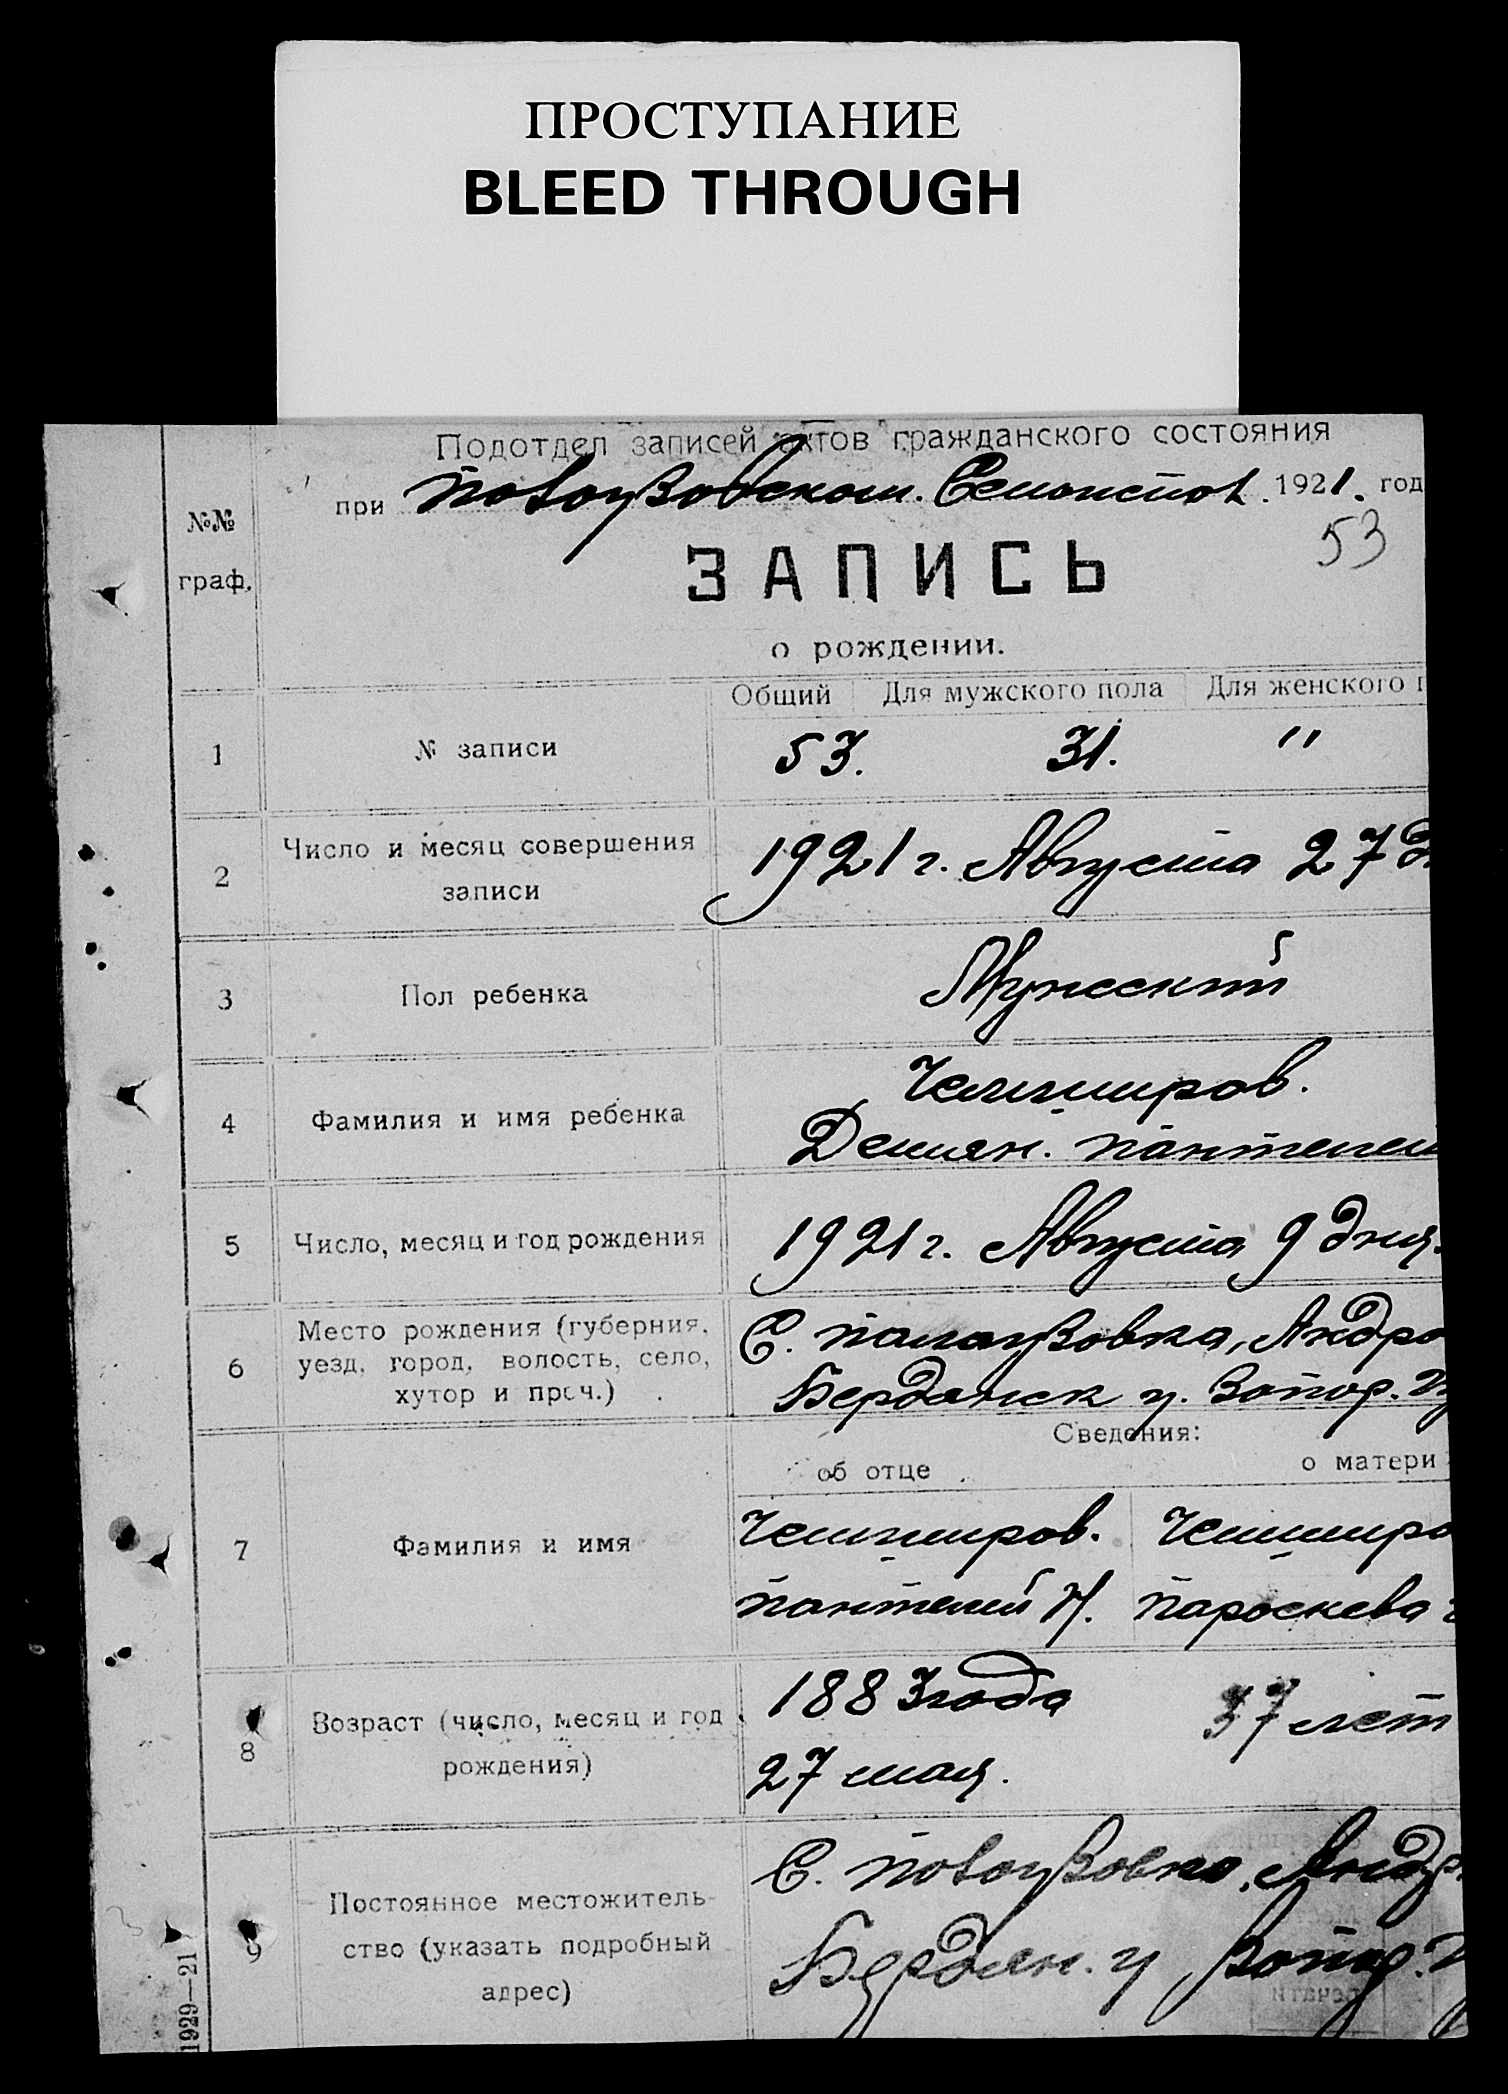 ПРОСТУПАНИЕ
BLEED THROUGH
Подотдел записей актов гражданского состояния
при 1921. год
№№
граф.
53
ЗАПИСЬ
о рождении.
Общий Для мужского пола Для женского п
1 № записи 53. 31. "
2 Число и месяц совершения
записи
1921 г. Августа 27 д
3 Пол ребенка Мужеский
4 Фамилия и имя ребенка
Чемширов.
Демян. Пантелеи
5 Число, месяц и год рождения 1921 г. Августа 9 дня.
6 Место рождения (губерния,
уезд, город, волость, село,
хутор и проч.)
С. Палаузовка, Андро
Бердянск у. Запор. Гу
Сведения:
об отце о матери
7 Фамилия и имя
Чемширов. Чемширо
Пантелей И. Параскева
8 Возраст (число, месяц и год
рождения)
1883 года 37 лет
27 мая.
9 Постоянное местожитель-
ство (указать подробный
адрес)
С. Андр
Бердян. у Запор. Г
1929—21